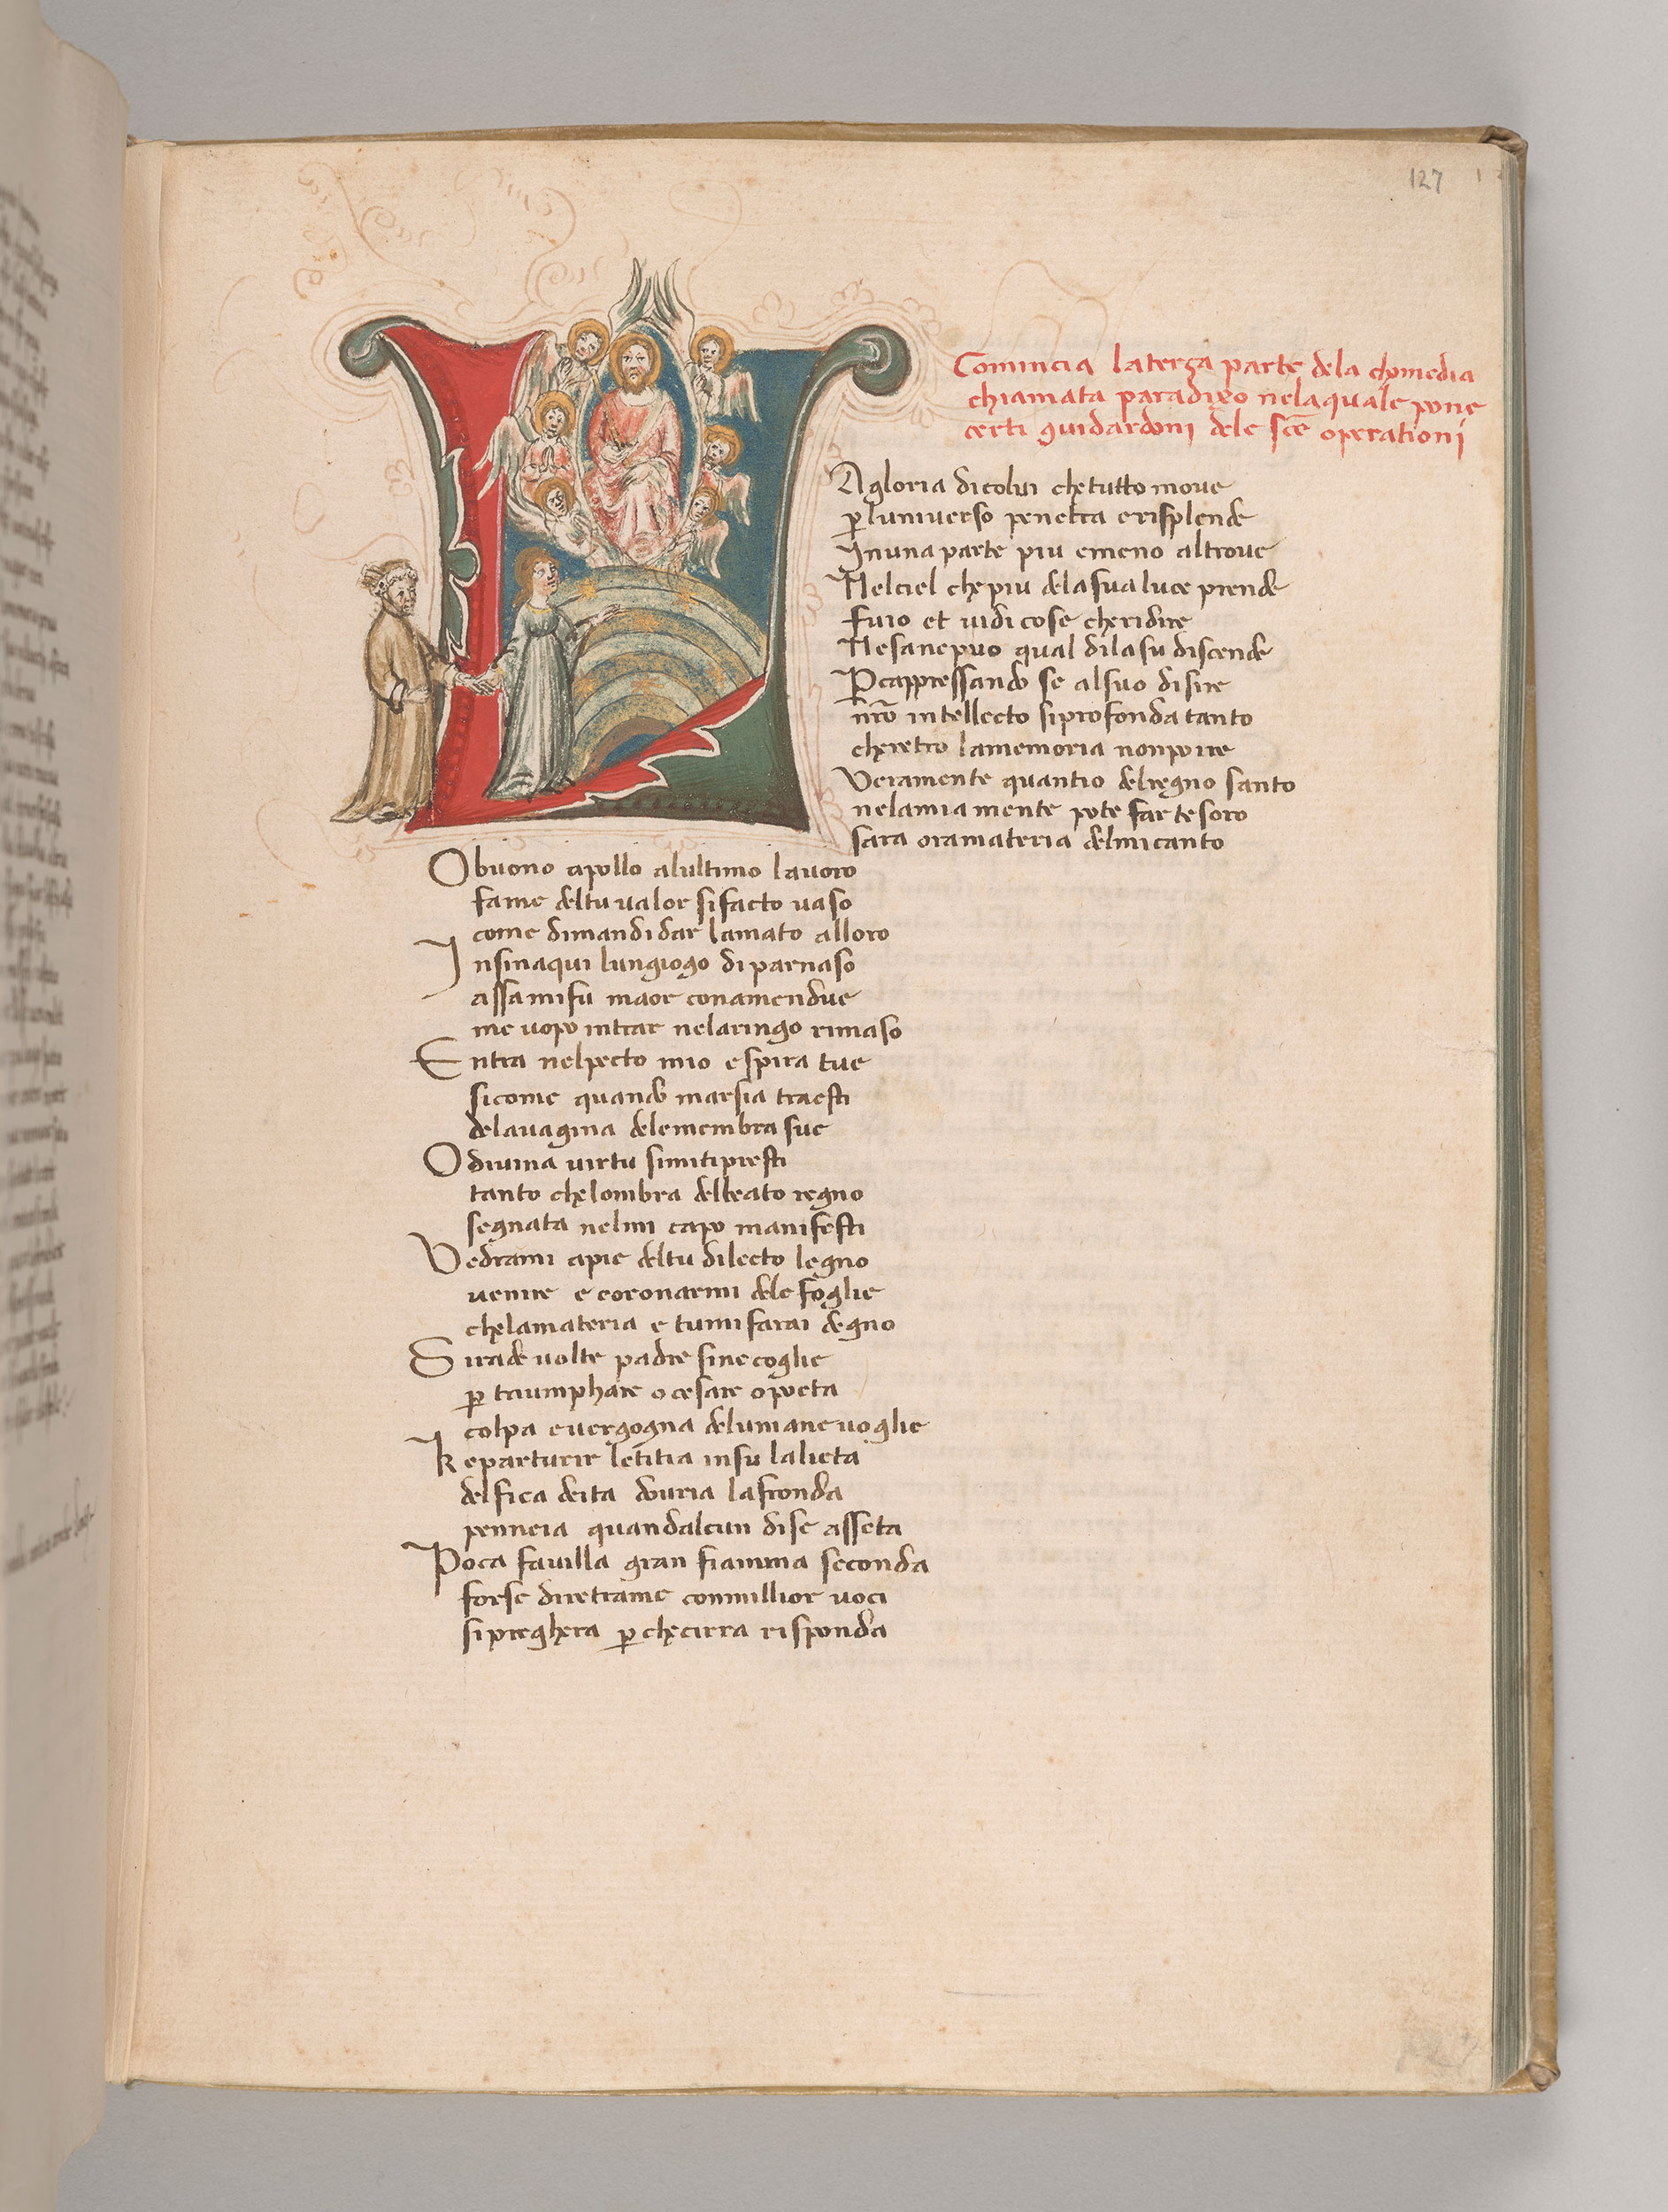 127
Comincia la terza parte dela chomedia
chiamata paradixo nelaquale pone
certi guidardoni dele sce operationi
L
A gloria dicolui chetutto move
p luniverso penetra erisplende
Inuna parte piu emeno altrove
Nelciel chepiu delasualuce prende
fuio et vidi cose cheridire
Nesanepuo qual dilasu discende
Pcappressando se alsuo disire
nro intellecto siprofonda tanto
cheretro lamemoria nonpo ire
Veramente quantio delregno santo
nelamia mente pote far tesoro
sara oramateria delmi canto
O buono apollo alultimo lavoro
fame deltu valor sifacto vaso
come dimandi dar lamato alloro
Insinaqui lungiogo di parnaso
assamifu maor conamendue
me uopo intrar nelaringo rimaso
Entra nelpecto mio espira tue
sicome quando marsia traesti
delavagina delemembra sue
O divina virtu simitipresti
tanto chelombra delbeato regno
segnata nelmi capo manifesti
Vedrami apie deltu dilecto legno
venire e coronarmi dele foglie
chelamateria e tumifarai degno
Sirade volte padre sinecoglie
p triumphare o cesare o poeta
colpa evergogna delumane voglie
Keparturir letitia insu lalieta
delfica deita dovria lafronda
penneia quandalcun dise asseta
Poca favilla gran fiamma seconda
forse diretrame conmillior voci
sipreghera p checirra risponda